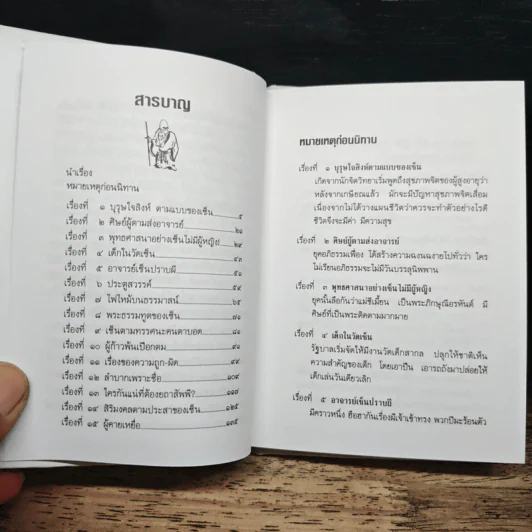 สารบาญ
นำเรื่อง
หมายเหตุก่อนนิทาน
เรื่องที่ ๑ บุรุษใจสิงห์ ตามแบบของเซ็น ๕
เรื่องที่ ๒ ศิษย์ผู้ตามส่งอาจารย์ ๒๑
เรื่องที่ ๓ พุทธศาสนาอย่างเซ็นไม่มีผู้หญิง ๒๙
เรื่องที่ ๔ เด็กในวัดเซ็น ๔๓
เรื่องที่ ๕ อาจารย์เซ็นปราบผี ๕๑
เรื่องที่ ๖ ประตูสวรรค์ ๕๗
เรื่องที่ ๗ ไฟไหม้บนธรรมาสน์ ๖๕
เรื่องที่ ๘ พระธรรมทูตของเซ็น ๗๓
เรื่องที่ ๙ เซ็นตามทรรศนะคนตาบอด ๘๑
เรื่องที่ ๑๐ ผู้ก้าวพ้นเปือกตม ๙๑
เรื่องที่ ๑๑ เรื่องของความถูก-ผิด ๙๙
เรื่องที่ ๑๒ ลำบากเพราะชื่อ ๑๐๙
เรื่องที่ ๑๓ ใครกันแน่ที่ต้องยถาสัพพี? ๑๑๗
เรื่องที่ ๑๔ สิริมงคลตามประสาของเซ็น ๑๒๕
เรื่องที่ ๑๕ ผู้คายเหยื่อ ๑๓๕
หมายเหตุก่อนนิทาน
เรื่องที่ ๑ บุรุษใจสิงห์ตามแบบของเซ็น
เกิดจากนักจิตวิทยาเริ่มพูดถึงสุขภาพจิตของผู้สูงอายุว่า
หลังจากเกษียณแล้ว มักจะมีปัญหาสุขภาพจิตเสื่อม
เนื่องจากไม่ได้วางแผนชีวิตว่าควรจะทำตัวอย่างไรดี
ชีวิตจึงจะมีค่า มีความสุข
เรื่องที่ ๒ ศิษย์ผู้ตามส่งอาจารย์
ยุคอภิธรรมเฟื่อง ได้สร้างความฉงนฉงายไปทั่วว่า ใคร
ไม่เรียนอภิธรรมจะไม่มีวันบรรลุนิพพาน
เรื่องที่ ๓ พุทธศาสนาอย่างเซ็นไม่มีผู้หญิง
ยุคนั้นลือกันว่าแม่ชีเมี้ยน เป็นพระภิกษุณีอรหันต์ มี
ศิษย์ที่เป็นพระติดตามมากมาย
เรื่องที่ ๔ เด็กในวัดเซ็น
รัฐบาลเริ่มจัดให้มีงานวัดเด็กสากล ปลุกให้ชาติเห็น
ความสำคัญของเด็ก โดยเอาปืน เอารถถังมาปล่อยให้
เด็กเล่นวันเดียวเลิก
เรื่องที่ ๕ อาจารย์เซ็นปราบผี
มีคราวหนึ่ง ฮือฮากันเรื่องผีเจ้าเข้าทรง พวกปีมะร้อนตัว